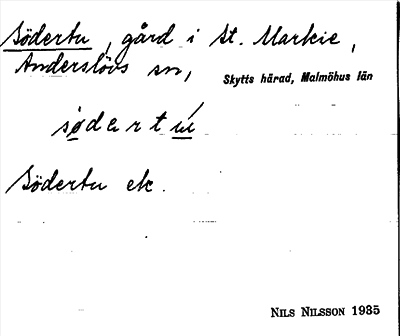 Södertu, gård i St. Markie,
Anderslövs sn, Skytts härad, Malmöhus län
södertú
Södertu etc.
NILS NILSSON 1935